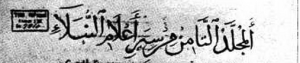 المجلد الثامن من سير أعلام النبلاء